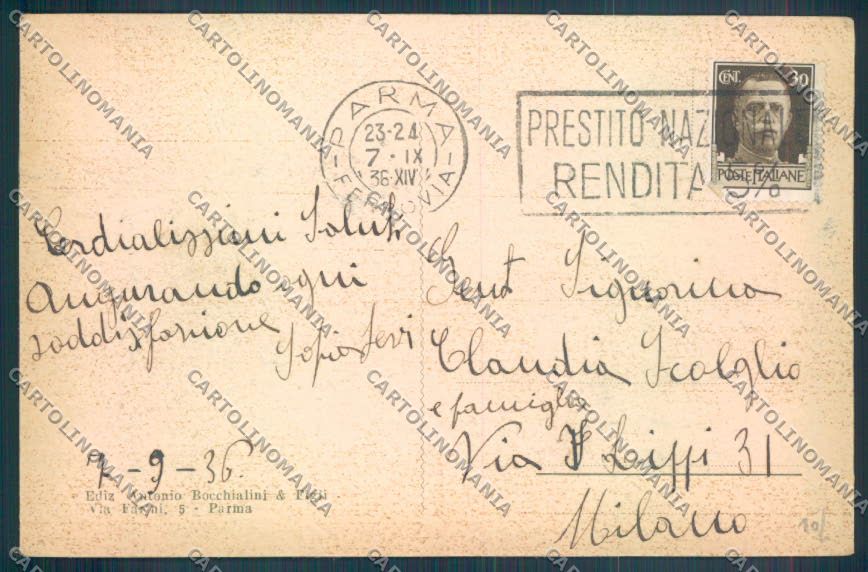 PARMA
FERROVIA
23-24
7 · IX
36·XIV
PRESTITO NAZIONALE
RENDITA 5%
CENT. 30
POSTE ITALIANE
Cordialissimi Saluti
Augurando ogni
soddisfazione
Gent Signorina
Claudia Scolglio
e famiglia
Via F Lippi 31
Milano
7-9-36.
Ediz Antonio Bocchialini & Figli
Via Farini, 5 - Parma
10/
CARTOLINOMANIA